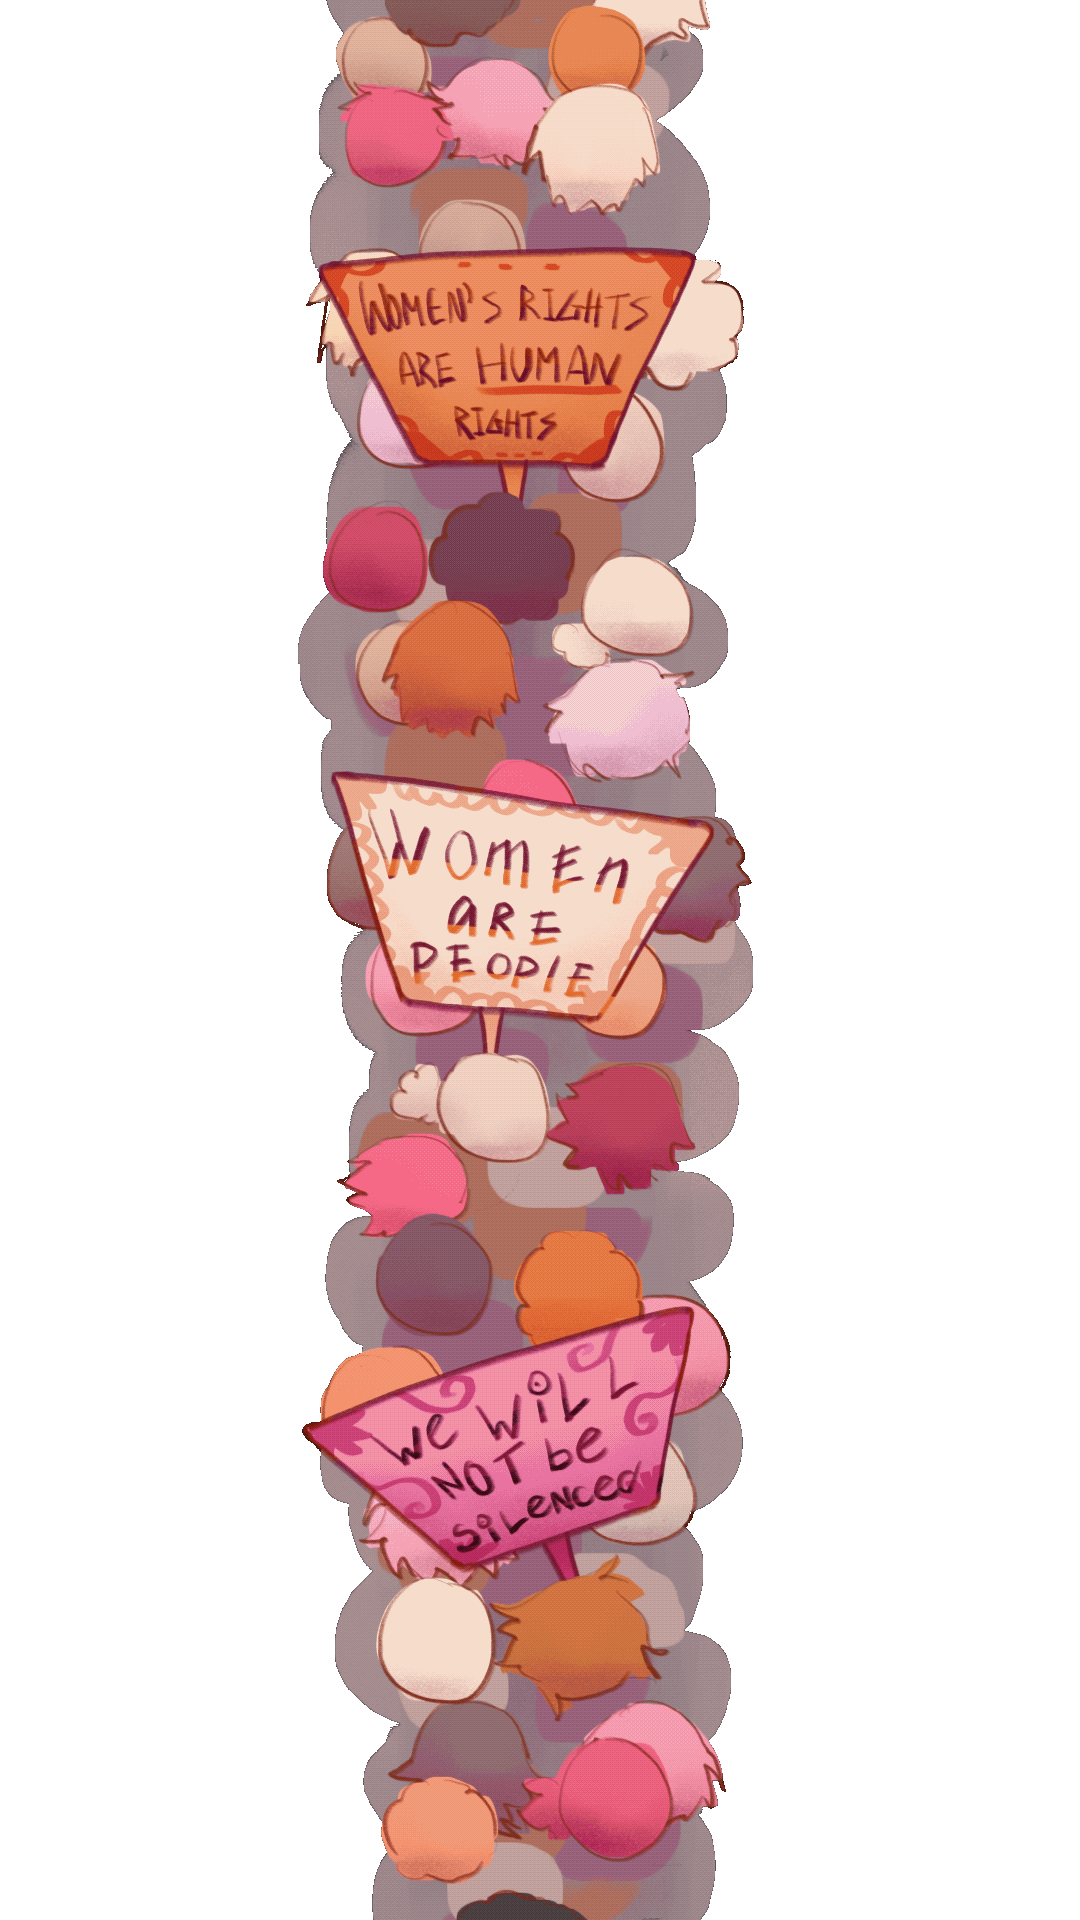 WOMEN'S RIGHTS
ARE HUMAN
RIGHTS
WOMEn
aRE
PEOPlE
We WiLL
NOT be
SiLeNced